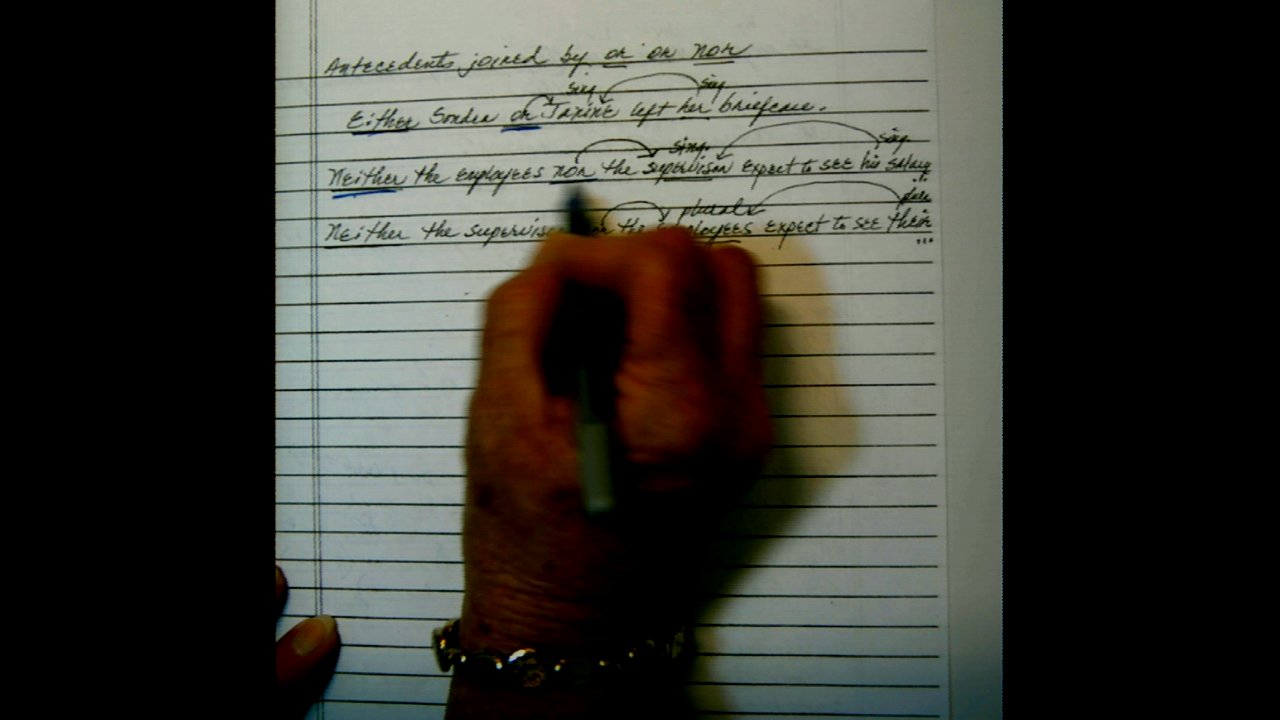 Antecedents joined by or or nor
sing. sing
Either Sondra or Janine left her briefcase.
sing. sing.
Neither the employees nor the supervisor expect to see his salary
plural
Neither the the employees expect to see their
...